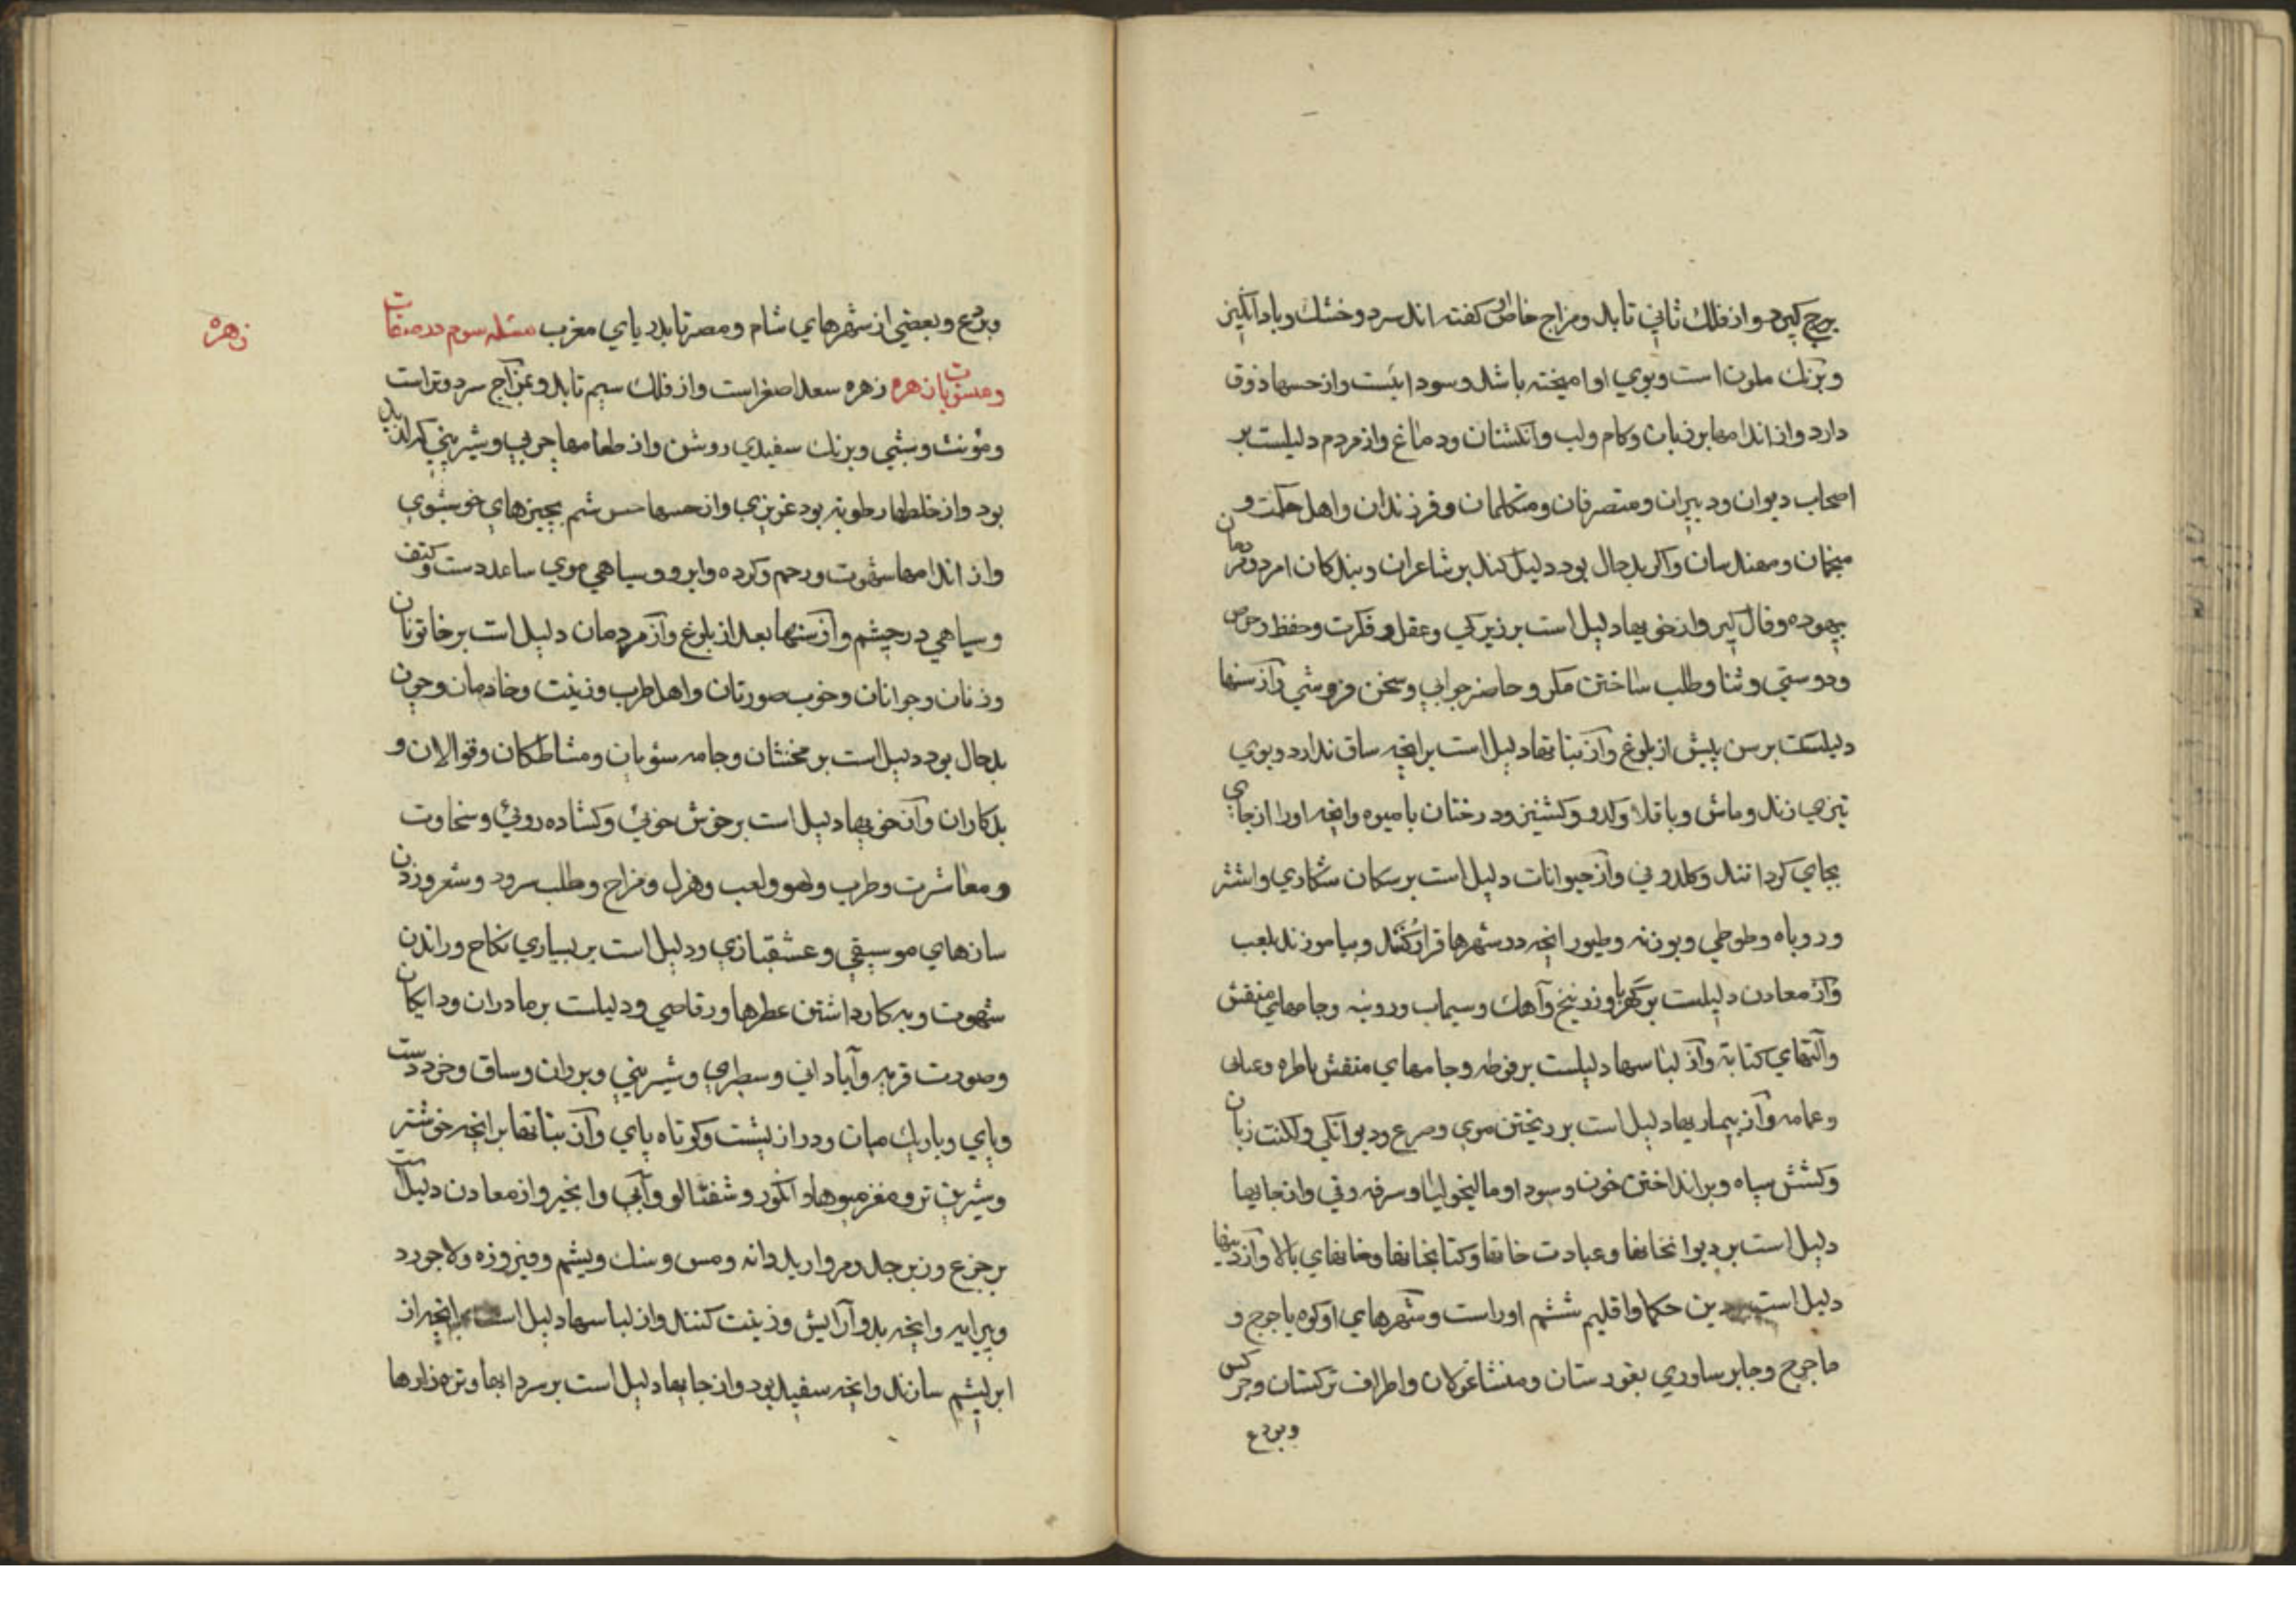 برج کیرد واز فلك ثاني تابد ومزاج خاص او کفته اند سرد وخشك وباد انکیز
وبرنك ملون است وبوي او امیخته باشد وسودائیست واز حسها ذوق
دارد واز اندامها بر زبان وکام ولب وانکشتان ودماغ واز مردم دلیلست بر
اصحاب دیوان ودبیران ومتصرفان ومتکلمان وفرزندان واهل حکمت و
منجمان ومهندسان واکر بدحال بود دلیل کند بر شاعران وبندکان امرد ومردمان
بیهوده وفال کیر واز خویها دلیل است بر زیرکي وعقل وفکرت وحفظ وحرص
ودوستي وثنا وطلب ساختن مکر وحاضر جوابي وسخن فروشي واز سنها
دلیلست بر سن پیش از بلوغ واز نباتها دلیل است بر انچه ساق ندارد وبوي
تیز مي زند وماش وباقلا وکدو وکشنیز ودرختان با میوه وانچه اورا از جاي
بجاي کردانند وکلدوني واز حیوانات دلیل است بر سکان شکاري واشتر
وروباه وطوطي وبوزنه وطیور انچه در شهرها قرار کنند وبیاموزند بلعب
واز معادن دلیلست بر کهربا وزرنیخ وآهك وسیماب وروینه وجامهاي منقش
وآلتهاي کتابة واز لباسها دلیلست بر فوطه وجامهاي منقش باطره
وعمامه واز بیماریها دلیل است بر ریختن موي وصرع ودیوانکي ولکنت زبان
وکشش سپاه وبر انداختن خون وسودا ومالیخولیا وسرفه وقي واز جایها
دلیل است بر دیوانخانها وعبادت خانها وکتابخانها وخانهاي بالا واز دینها
دلیل است دین حکما واقلیم ششم اوراست وشهرهاي او کوه یاجوج و
ماجوج وجابرسا وري واطراف ترکستان وجرکس
وبردع
وبردع وبعضي از شهرهاي شام ومصر تا بدریاي مغرب مسئله سوم در صفات
ومنسوبات زهره زهره سعد اصغر است واز فلك سیم تابد وبمزاج سرد وتر است
زهره
ومؤنث وشبي وبرنك سفیدي روشن واز طعامها چربي وشیریني که لذیذ
بود واز خلطها رطوبه بود غریزي واز حسها حس شم بچیزهاي خوشبوي
واز اندامها شهوت ورحم وکرده وابرو وسیاهي موي ساعد دست وکتف
وسیاهي در چشم واز سنها بعد از بلوغ واز مردمان دلیل است بر خاتونان
وزنان وجوانان وخوب صورتان واهل طرب وزینت وخادمان وچون
بدحال بود دلیل است بر مخنثان وجامه شویان ومشاطکان وقوالان و
بدکاران واز خویها دلیل است بر خوش خوئي وکشاده روئي وسخاوت
ومعاشرت وطرب ولهو ولعب وهزل ومزاح وطلب سرود وشعر وزدن
سازهاي موسیقي وعشقبازي ودلیل است بر بسیاري نکاح وراندن
شهوت وبه کار داشتن عطرها ورقاصي ودلیلست بر مادران ودایکان
وصورت فربه وآباداني وسطبري وشیریني وبر ران وساق وخرد دست
وپاي وباریك میان ودراز پشت وکوتاه پاي واز نباتها بر انچه خوشتر
وشیرین تر ومغز میوها وانکور وشفتالو وآبي وانجیر واز معادن دلیل است
بر جزع وزبرجد ومروارید دانه ومس وسنك ویشم وفیروزه ولاجورد
وپیرایه وانچه بدو آرایش وزینت کنند واز لباسها دلیل است بر انچه از
ابریشم سازند وانچه سفید بود واز جایها دلیل است بر سردابها وتره زارها